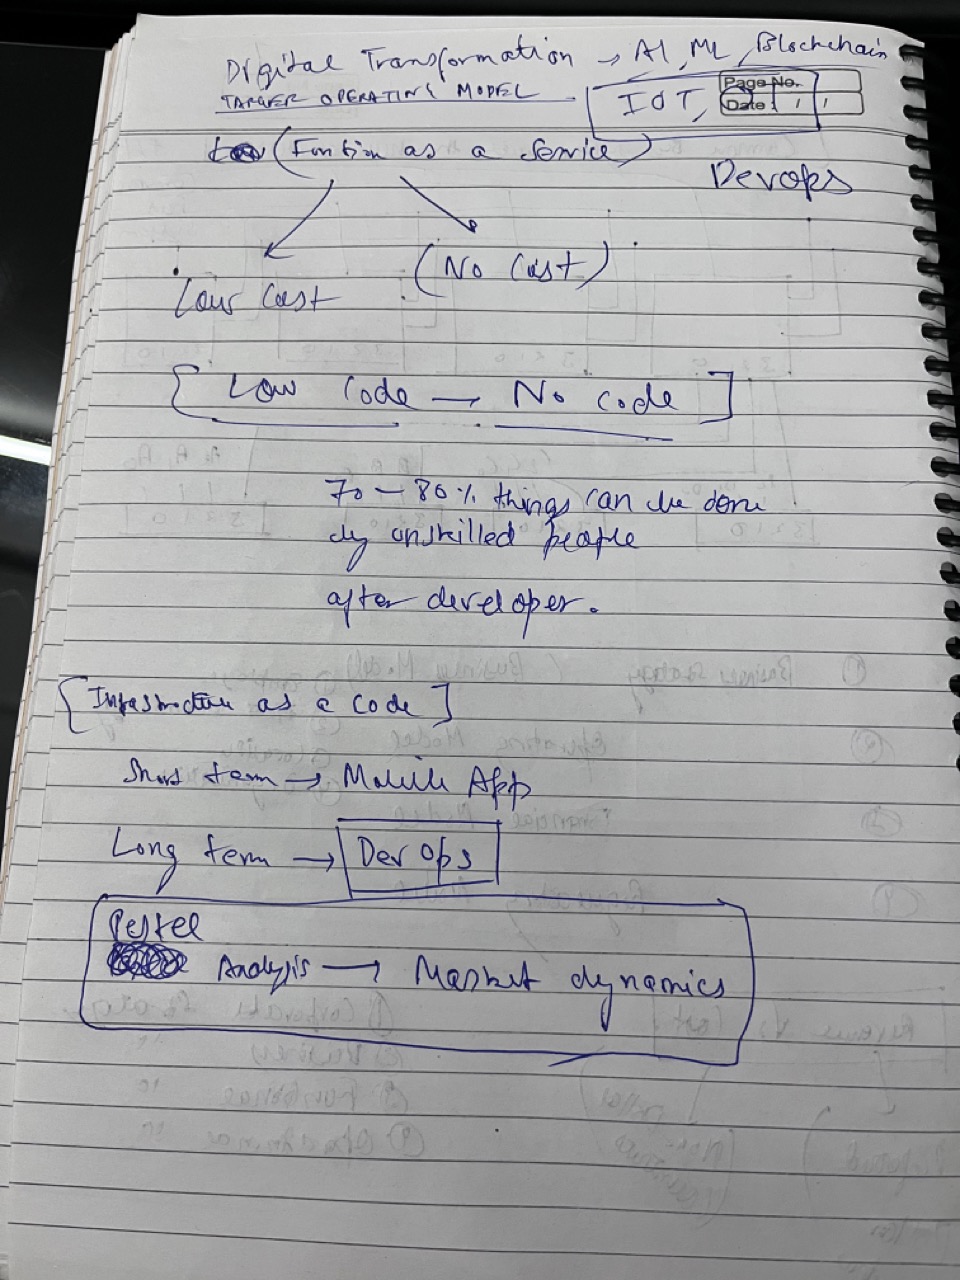 Digital Transformation → AI, ML, Blockchain
TARGER OPERATING MODEL
IOT,
Page No.
Date : / /
(Funtion as a Service)
Devops
(No Cost)
Low Cost
[Low Code → No code]
70 - 80% things can be done
by unskilled people
after developer.
[Infrastructure as a Code]
Short term → Mobile App
Long term → Dev Ops
Pestel
Analysis → Market dynamics